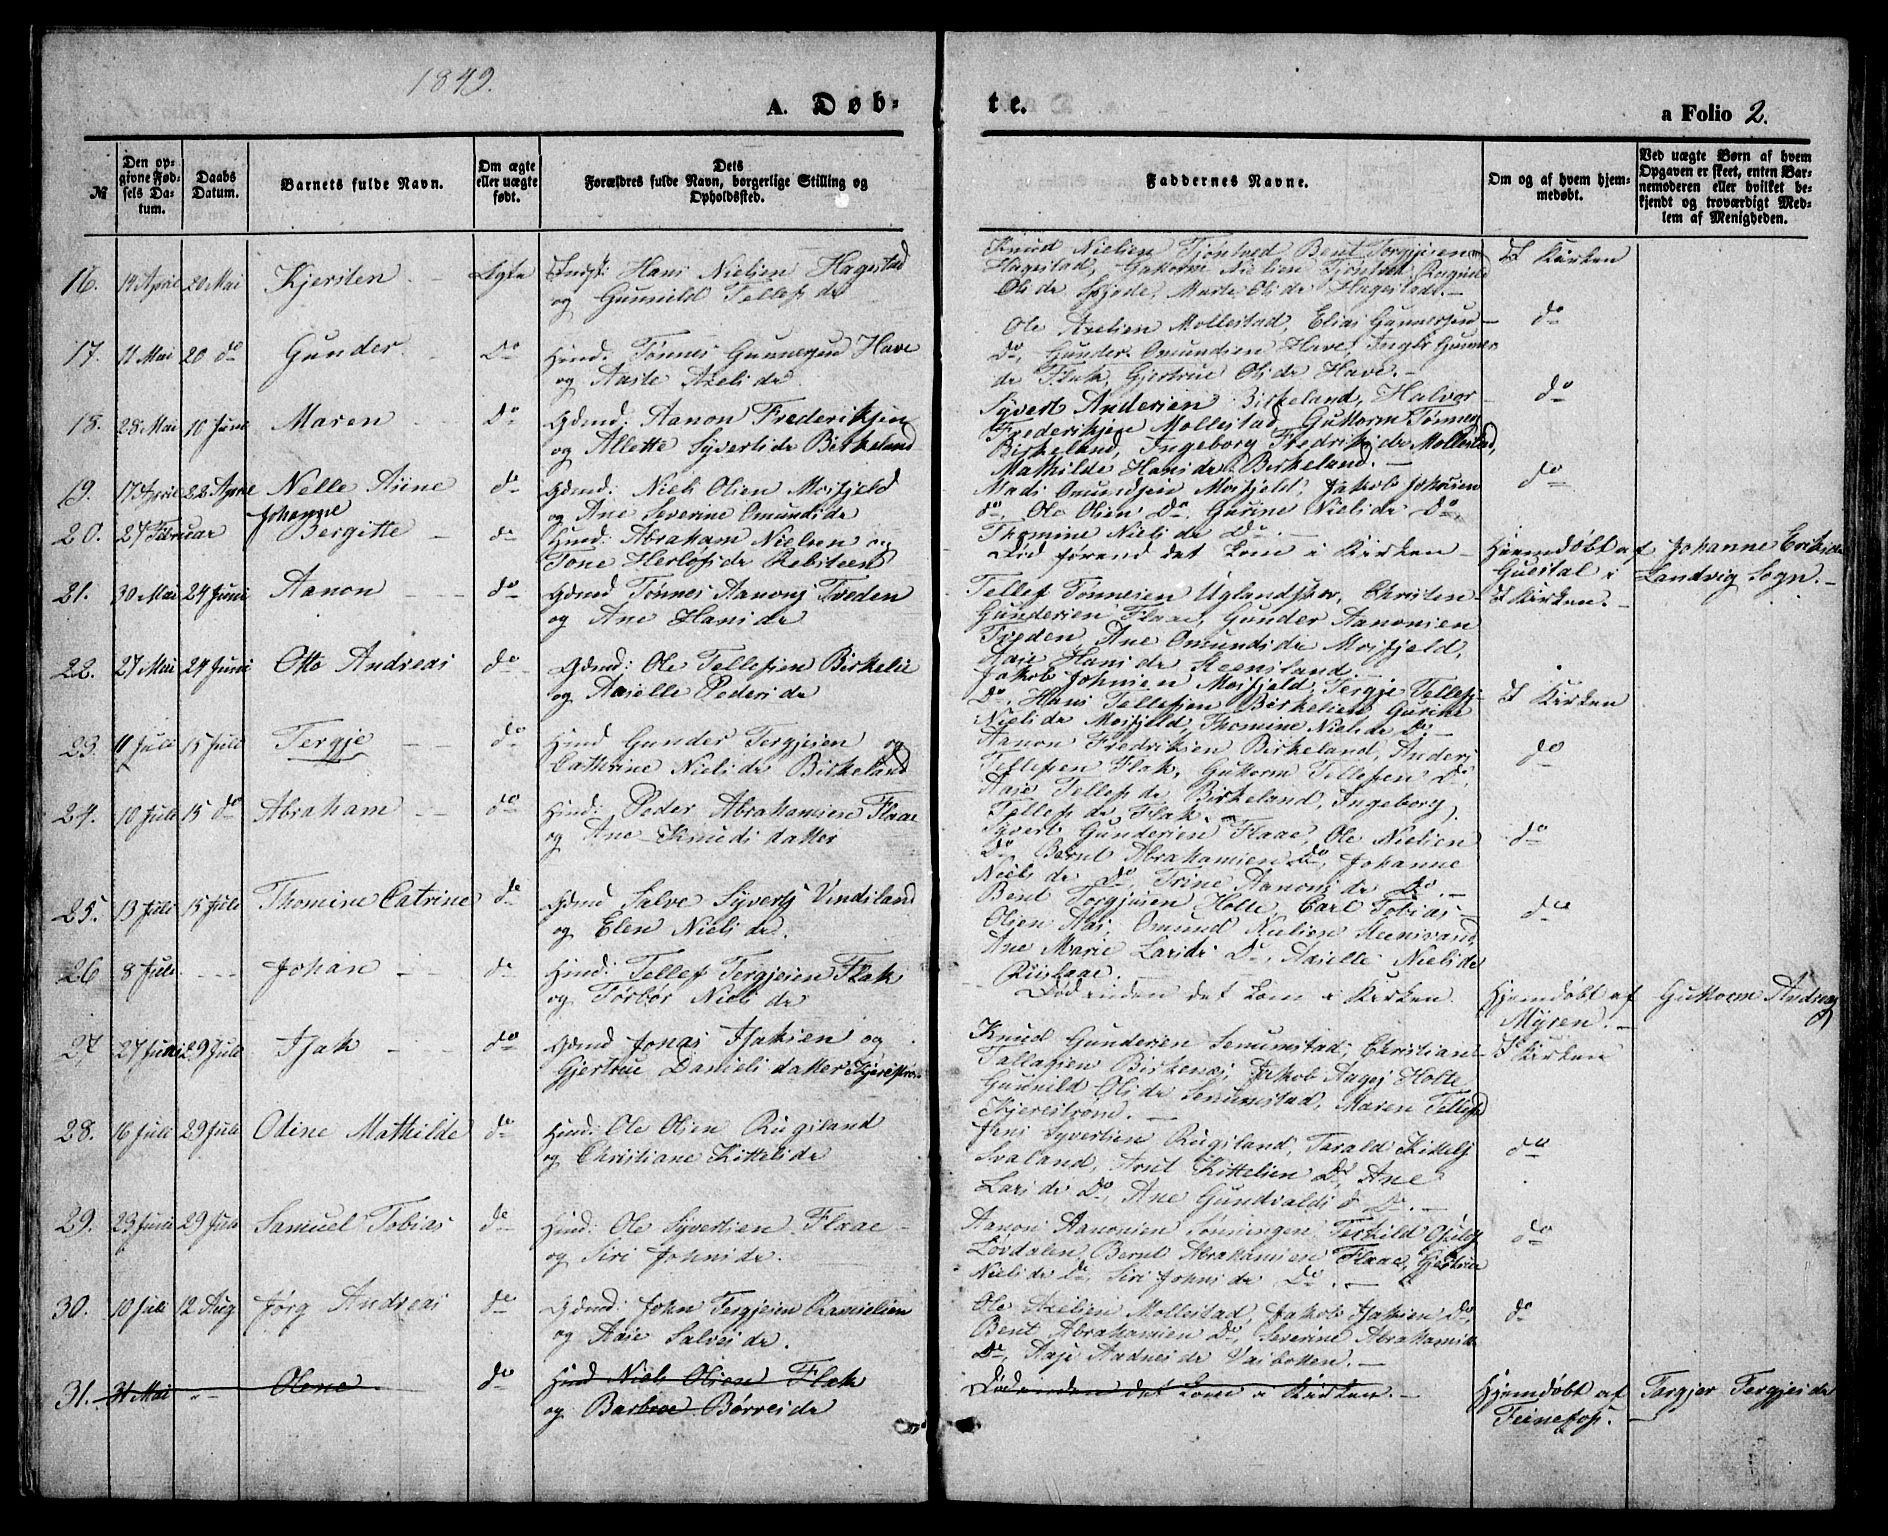 1849.
A. Døb-
te.
a Folio 2.
№
Den op-
givne Fød-
sels Da-
tum.
Daabs
Datum.
Barnets fulde Navn.
Om ægte
eller uægte
født.
Dets
Forældres fulde Navn, borgerlige Stilling og
Opholdssted.
Faddernes Navne.
Om og af hvem hjem-
medøbt.
Ved uægte Børn af hvem
Opgaven er skeet, enten Bar-
nemoderen eller hvilket be-
kjendt og troværdigt Med-
lem af Menigheden.
16. 14 April 20 Mai Kjersten Ægte Hans Nielsen Hagestad
og Gunnild Tellefsdr
Knud Nielsen Tjøntved Bent Torgjusen
Hagestad, Guttorm Nielsen
Olsdr Marte Olsdr Hagestad.
I Kirken
17. 11 Mai 20 do Gunder do Hmd: Tønnes Gunnersen Have
og Aaste Axelsdr.
Ole Axelsen Mollestad, Elias Gunnersen
Do, Gunder Omundsen Have, Gunner
dr Flak, Gjertrue Olsdr Have.
do
18. 28 Mai 10 Juni Maren do Gdmd: Aanon Frederiksen
og Allette Syvertsdr Birkeland
Syvert Andersen Birkeland, Halvor
Frederiksen Mollestad, Guttorm Tønnes
Birkeland, Ingeborg Fredriksdr Mollestad,
Mathilde Hansdr Birkeland.
do
19. 17 April 22 April Nelle Aiine do Gdmd: Niels Olsen Mosfjeld
og Ane Severine Omundsdr
Mads Omundsen Mosfjeld, Jakob Johnsen
do, Ole Olsen Do, Gurine Nielsdr Do,
Thomine Nielsdr Do.
do
20. 27 Februar Johanne
Bergitte do Hmd: Abraham Nielsen og
Tone Herlofsdr Rebsteen
Død førend det kom i Kirken
Hjemdøbt af Johanne Eriksdr
i Landvig Sogn.
21. 30 Mai 24 Juni Aanon do Gdmd Tønnes Aanons Treden
og Ane Hansdr
Tellef Tønnesen Christen
Gundersen Flaae, Gunder Aanonsen
Treden, Ane Omundsdr Mosfjeld,
Aase Hansdr
I Kirken.
22. 27 Mai 24 Juni Otto Andreas do Gdmd: Ole Tellefsen Birkelie
og Asielle Pedersdr
Jakob Johnsen Mosfjeld, Tergje Tellefs
Do, Hans Tellefsen Birkelien Gurine
Nielsdr Mosfjeld, Thomine Nielsdr Do
I Kirken
23. 11 Juli 15 Juli Tergje do Hmd Gunder Tergjesen og
Cathrine Nielsdr Birkeland
Aanon Fredriksen Birkeland, Anders
Tellefsen Flak, Guttorm Tellefsen Do,
Aase Tellefsdr Birkeland, Ingeborg
Tellefsdr Flak.
do
24. 10 Juli 15 do Abraham do Hmd: Peder Abrahamsen Flaae
og Ane Knudsdatter
Syvert Gundersen Flaae, Ole Nielsen
Do Bernt Abrahamsen Do, Johanne
Nielsdr Do, Trine Aanonsdr Do.
do
25. 13 Juli 15 Juli Thomine Catrine do Gdmd Salve Syverts Vindsland
og Elen Nielsdr.
Bent Torgjusen Holte, Carl Tobias
Olsen Aas, Omund Nielsen
Ane Marie Larsdr Do, Asielle Nielsdr
do
26 8 Juli Johan do Hmd: Tellef Tergjesen Flak
og Torbør Nielsdr
Død inden det kom i Kirken.
Hjemdøbt af Guttorm Andreas
Myren.
27 27 Juni 29 Juli Isak do Gdmd Jonas Isaksen og
Gjertrue Danielsdatter Kjerestrøm
Knud Gundersen Senumstad, Christian
Tallaksen Birkenes, Jakob Aages Holte
Gunnild Olsdr Senumstad, Maren Tellefsd
Kjerestrøm.
I Kirken
28. 16 Juli 29 Juli Odine Mathilde do Hmd: Ole Olsen Rugsland
og Christiane Kittelsdr
Jens Syvertsen Rugsland, Tarald Kittels
Svaland, Arnt Kittelsen Do, Ane
Larsdr Do, Ane Gundvaldsd Do.
do
29. 23 Juni 29 Juli Samuel Tobias do Hmd: Ole Syvertsen Flaae
og Siri Johnsdr.
Aanon Aanonsen Terkild
Løvdalen, Bernt Abrahamsen Flaae, Gjertrue
Nielsdr Do, Siri Johnsdr Do.
do
30. 10 Juli 12 Aug Jørg Andreas do Gdmd: John Tergjesen
og Aase Salvesdr.
Ole Axelsen Mollestad, Jakob Isaksen Do,
Bent Abrahamsen Do, Severine Abrahamsdr
Do, Aase Aadnesdr Vasbotten.
do
31. 31 Mai Olene do Hmd Niels Olsen Flak
og Barbroe Børresdr
Død inden det kom i Kirken.
Hjemdøbt af Torgjer Tergjesdr